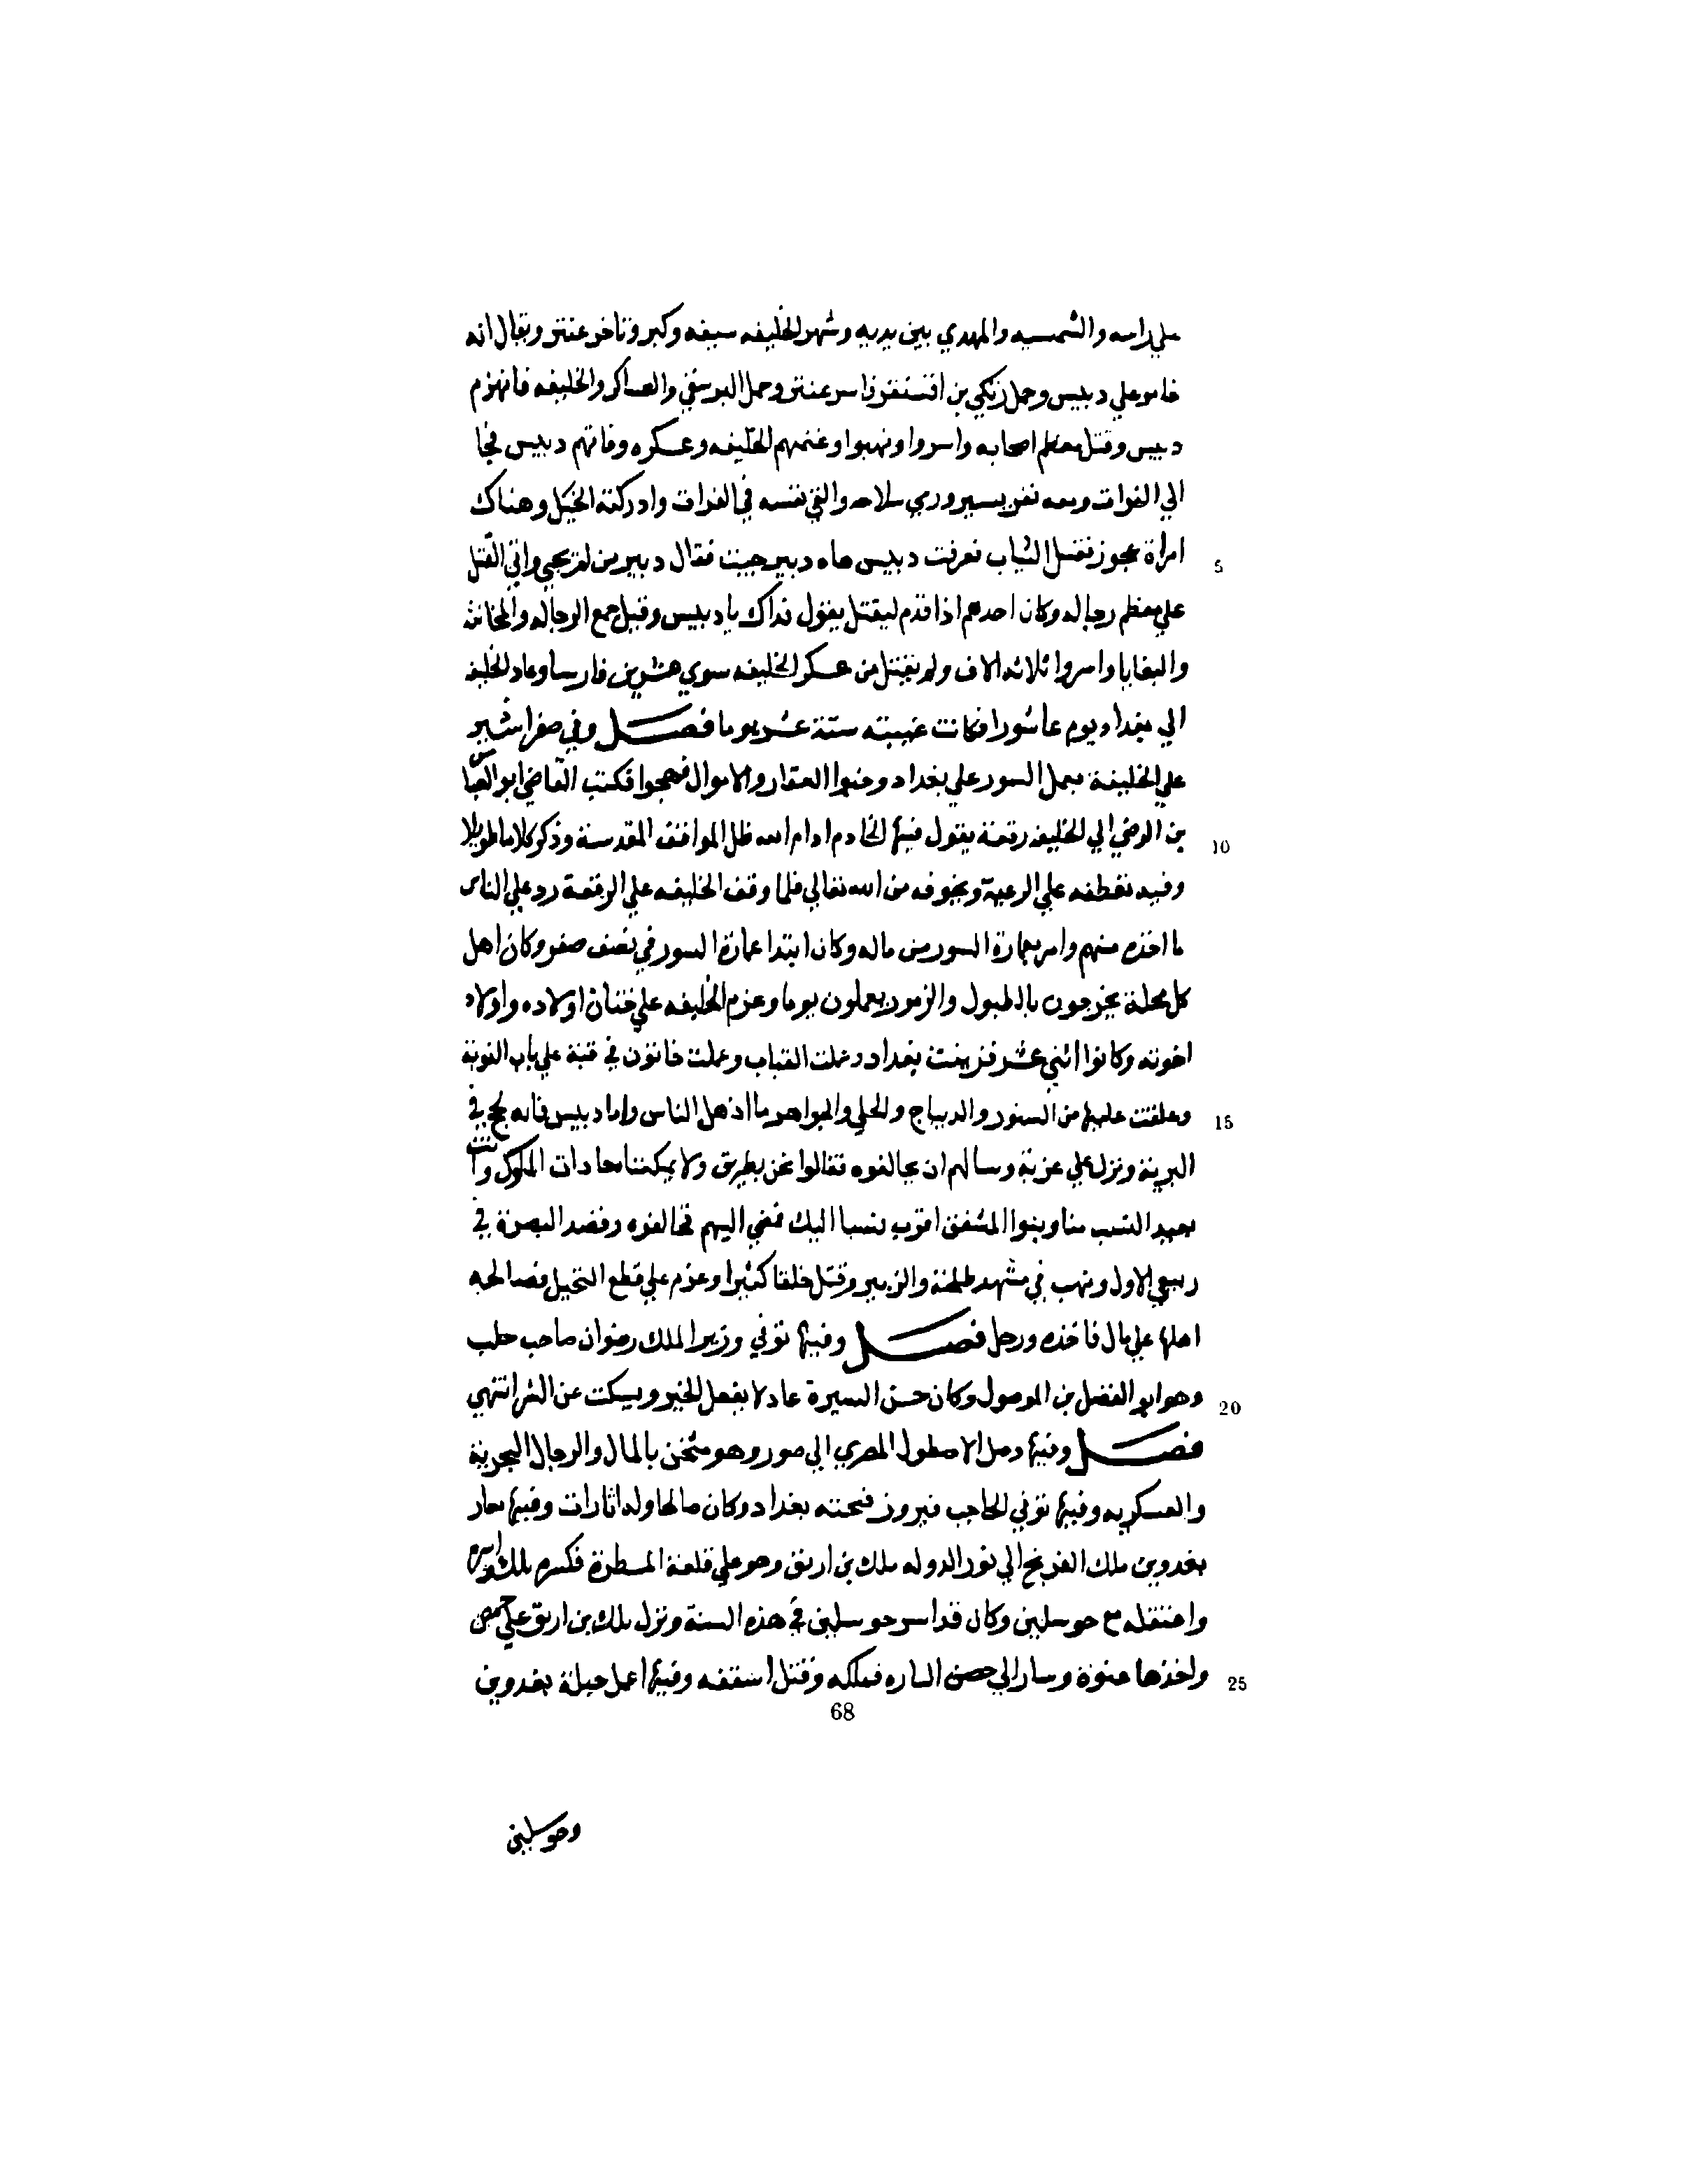 علي راسه والشمسيه والمهدي بين يديه وشهر الخليفه سيفه وكبر وتاخر عنتر ويقال انه
خامر علي دبيس وحمل زنكي بن اقسنقر فاسر عنتر وحمل البرسقي والعساكر والخليفه فانهزم
دبيس وقتل معظم اصحابه واسروا ونهبوا وغنمهم الخليفه وعسكره وفاتهم دبيس فجا
الي الفرات ومعه نفر يسير ورمي سلاحه والقي نفسه في الفرات وادركته الخيل وهناك
امراة عجوز تغسل الثياب فعرفت دبيس دبير جيت فقال دبير من لم يجي واتي القتل
5
علي معظم رجاله وكان احدهم اذا قدم ليقتل يقول فداك يا دبيس وقيل جمع الرجاله والمخانث
والبغايا واسروا ثلاثه الاف ولم يقتل من عسكر الخليفه سوي عشرين فارسا وعاد الخليفه
الي بغداد يوم عاشورا فكانت غيبته ستة عشر يوما فصل وفي صفر اشير
علي الخليفة بعمل السور علي بغداد وجبوا العقار والاموال فضجوا فكتب القاضي ابو العباس
بن الرضي الي الخليفه رقعة يقول فيها الخادم ادام الله ظل المواقف المقدسة وذكر كلاما طويلا
10
وفيه تعطفه علي الرعية ويخوفه من الله تعالي فلما وقف الخليفه علي الرقعة رد علي الناس
ما اخذه منهم وامر بعمارة السور من ماله وكان ابتدا عمارة السور في نصف صفر وكان اهل
كل محلة يخرجون بالطبول والزمور يعملون يوما وعزم الخليفه علي ختان اولاده واولاد
اخوته وكانوا اثني عشر فزينت بغداد وعملت القباب وعملت خاتون في قبة علي باب النوبة
وعلقت عليها من الستور والديباج والحلي والجواهر ما اذهل الناس واما دبيس فانه لجج في
15
البرية ونزل علي غزية وسالهم ان يحالفوه فقالوا نحن بطريق ولا يمكننا معادات الملوك وانت
بعيد النسب منا وبنوا المنتفق اقرب نسبا اليك فمضي اليهم فحالفوه وقصد البصرة في
ربيع الاول ونهب في مشهد طلحة والزبير وقتل خلقا كثيرا وعزم علي قطع النخيل فصالحه
اهلها علي مال فاخذه ورحل فصل وفيها توفي وزير الملك رضوان صاحب حلب
وهو ابو الفضل بن الموصول وكان حسن السيرة عادلا يفعل الخير ويسكت عن الشر انتهي
20
فصل وفيها دخل الاصطول المصري الي صور وهو مشحن بالمال والرجال البحرية
والعسكريه وفيها توفي الحاجب فيروز شحنة بغداد وكان صالحا وله اثارات وفيها سار
بغدوين ملك الفرنج الي نور الدوله بلك بن ارتق وهو علي قلعة فكسره بلك واسره
واعتقله مع جوسلين وكان قد اسر جوسلين في هذه السنة ونزل بلك بن ارتق علي
واخذها عنوة وسار الي حصن الباره فملكه وقتل اسقفه وفيها اعمل حيلة بغدوين
25
68
وجوسلين